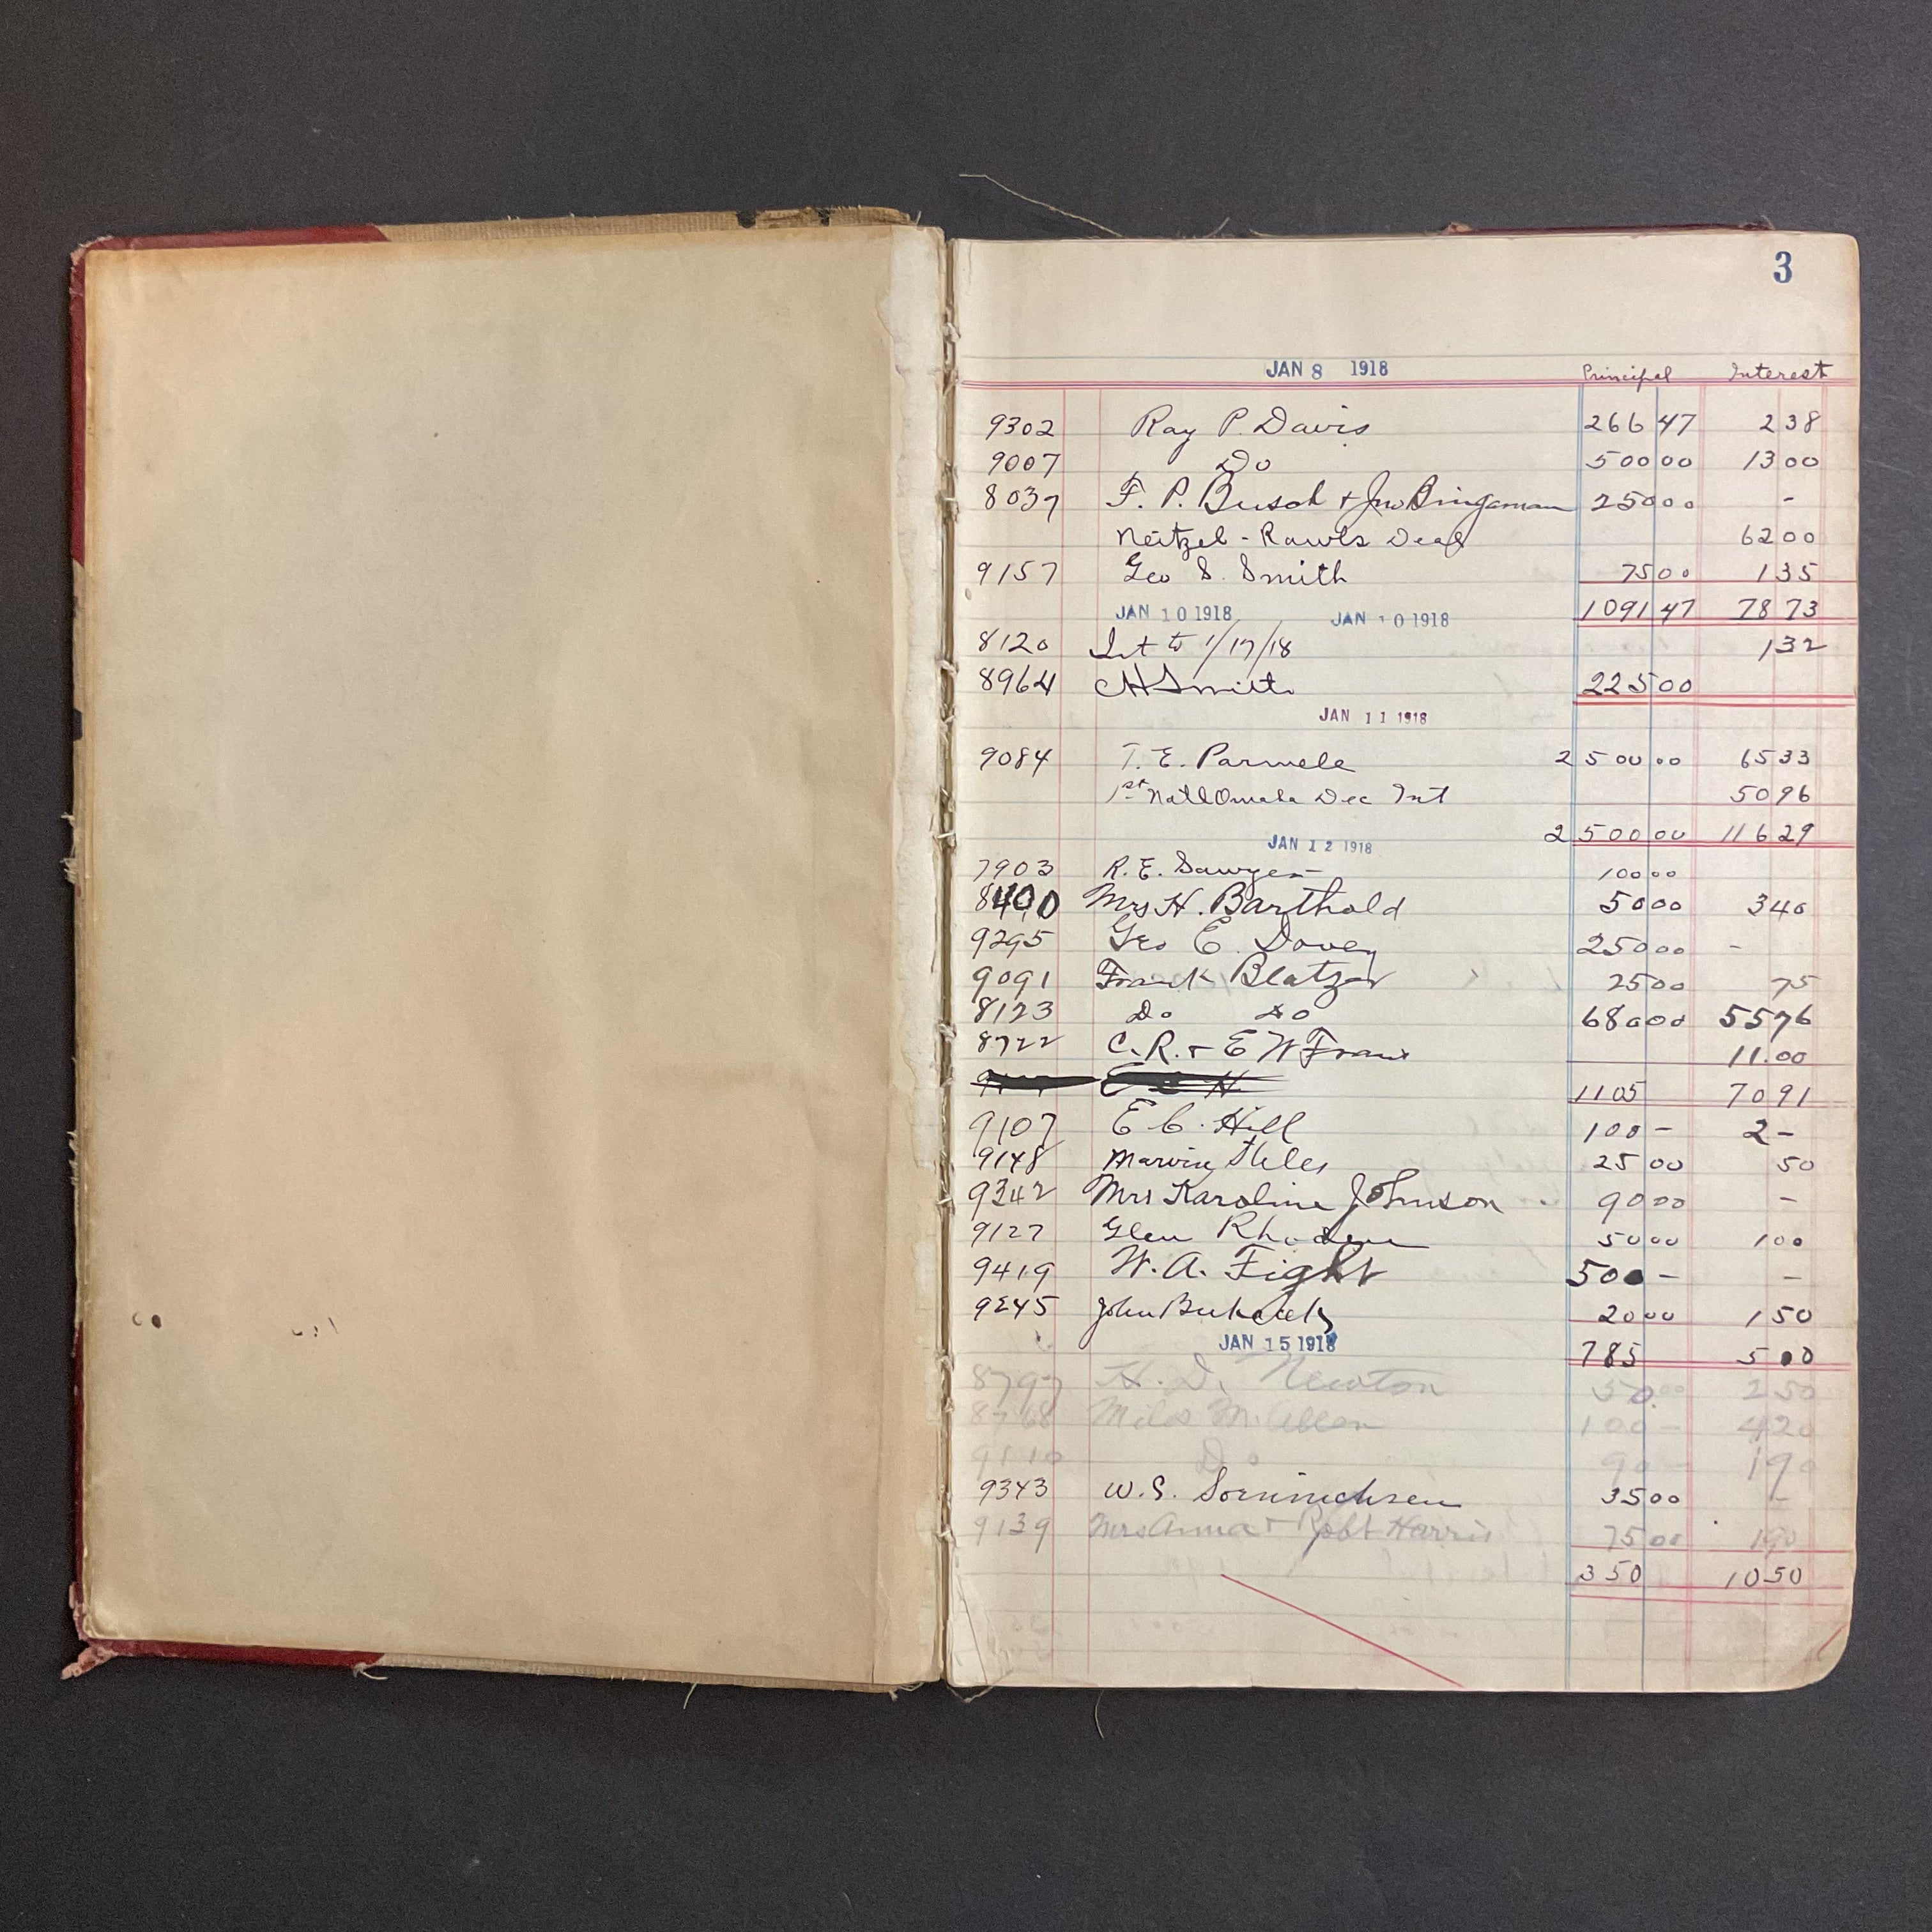 3
JAN 8 1918 Principal Interest
9302 Ray P. Davis 266 47 2 38
9007 Do 500 00 13 00
8037 F. P. Busch + Jno Bingaman 250 00 -
Neitzel - Rawls Deal 62 00
9157 Geo S. Smith 75 00 1 35
JAN 10 1918 JAN 10 1918 1091 47 78 73
8120 Int to 1/17/18 1 32
8964 CH Smith 225 00
JAN 11 1918
9084 T. E. Parmele 2500 00 65 33
1st Natl Omaha Dec Int 50 96
2500 00 116 29
JAN 12 1918
7903 R. E. Sawyer 100 00
8400 Mrs H. Barthold 50 00 3 40
9295 Geo E. Dovey 250 00 -
9091 Frank Blatzer 25 00 75
8123 Do Do 680 00 55 76
8722 C. R. + E W Frans 11.00
1105 70 91
9107 E C. Hill 100 - 2 -
9148 Marvin 25 00 50
9342 Mrs Karoline Johnson 90 00 -
9127 Glen Rhoden 50 00 1 00
9419 W. A. Fight 500 - -
9245 John 20 00 1 50
JAN 15 1918 785 5 00
8797 H. D. Newton 50 00 2 50
8768 Miles M. Allen 100 - 4 20
9110 Do 90 - 1 90
9343 W. S. Soennichsen 35 00 -
9139 Mrs Anna + Robt Harris 75 00 1 90
350 10 50